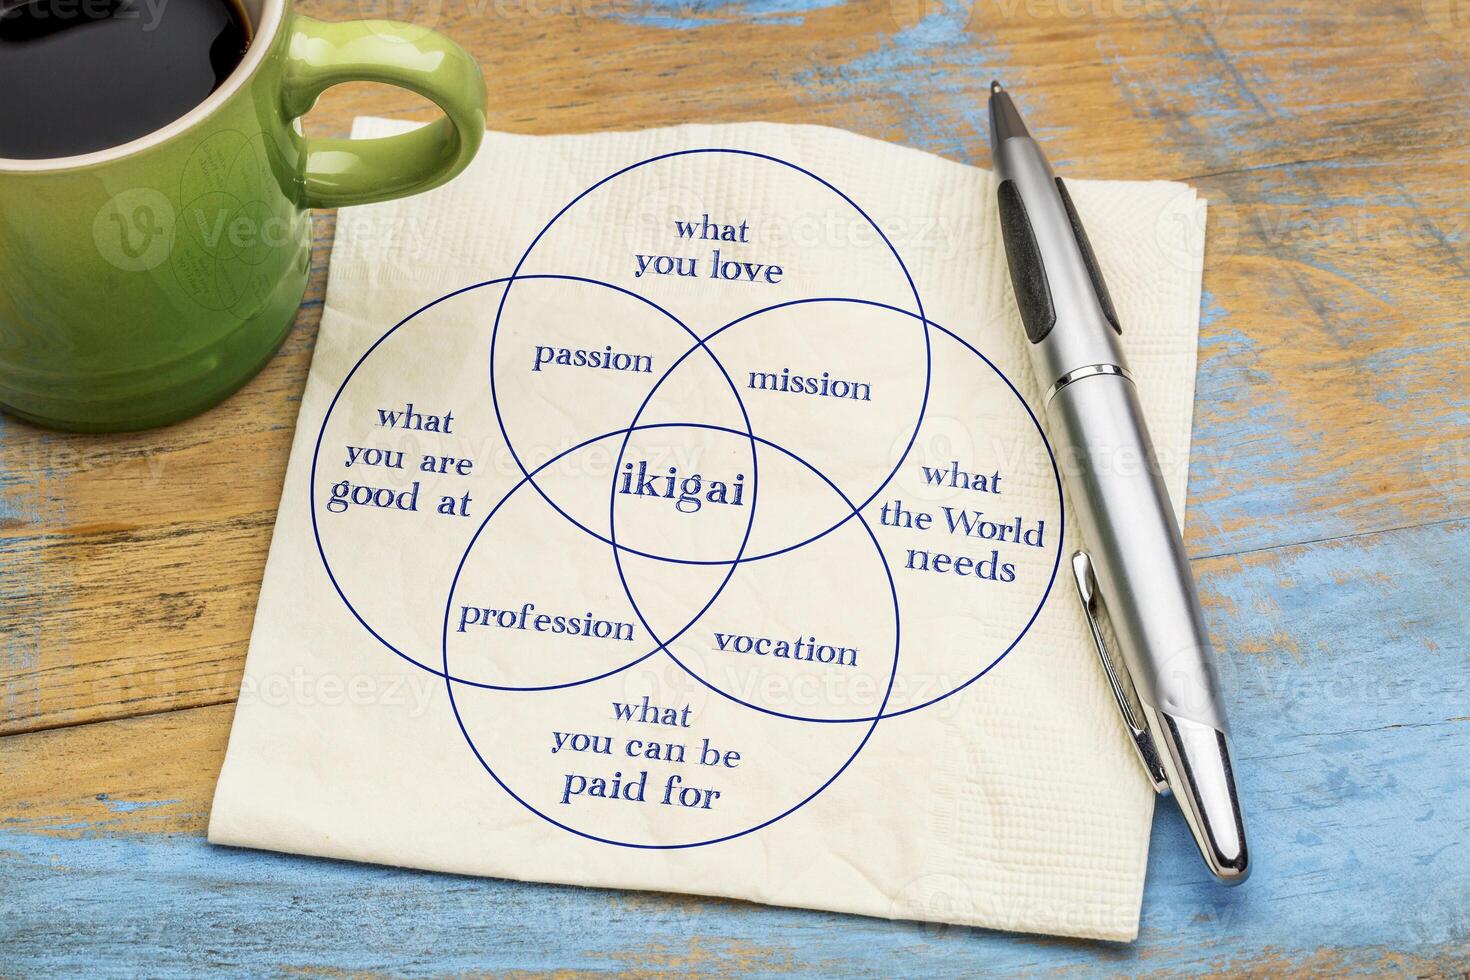 what
you love
passion
mission
what
you are
good at
ikigai
what
the World
needs
profession
vocation
what
you can be
paid for
Vecteezy
Vecteezy
Vecteezy
Vecteezy